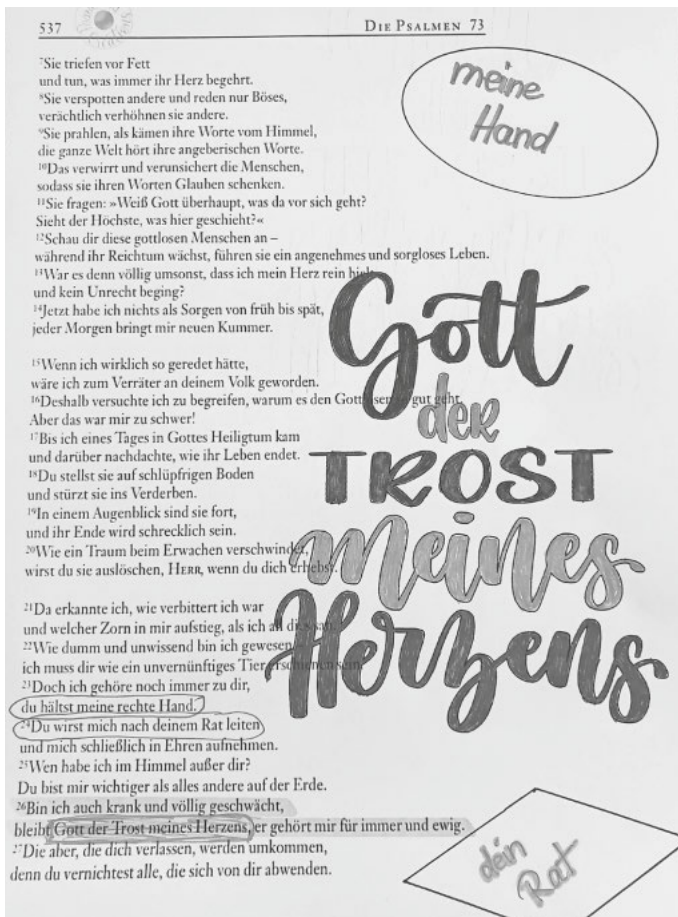 537
DIE PSALMEN 73
meine
Hand
⁷Sie triefen vor Fett
und tun, was immer ihr Herz begehrt.
⁸Sie verspotten andere und reden nur Böses,
verächtlich verhöhnen sie andere.
⁹Sie prahlen, als kämen ihre Worte vom Himmel,
die ganze Welt hört ihre angeberischen Worte.
¹⁰Das verwirrt und verunsichert die Menschen,
sodass sie ihren Worten Glauben schenken.
¹¹Sie fragen: »Weiß Gott überhaupt, was da vor sich geht?
Sieht der Höchste, was hier geschieht?«
¹²Schau dir diese gottlosen Menschen an –
während ihr Reichtum wächst, führen sie ein angenehmes und sorgloses Leben.
¹³War es denn völlig umsonst, dass ich mein Herz rein
und kein Unrecht beging?
¹⁴Jetzt habe ich nichts als Sorgen von früh bis spät,
jeder Morgen bringt mir neuen Kummer.
¹⁵Wenn ich wirklich so geredet hätte,
wäre ich zum Verräter an deinem Volk geworden.
¹⁶Deshalb versuchte ich zu begreifen, warum es den gut geht.
Aber das war mir zu schwer!
¹⁷Bis ich eines Tages in Gottes Heiligtum kam
und darüber nachdachte, wie ihr Leben endet.
¹⁸Du stellst sie auf schlüpfrigen Boden
und stürzt sie ins Verderben.
¹⁹In einem Augenblick sind sie fort,
und ihr Ende wird schrecklich sein.
²⁰Wie ein Traum beim Erwachen verschwindet,
wirst du sie auslöschen, HERR, wenn du dich erhebst.
²¹Da erkannte ich, wie verbittert ich war
und welcher Zorn in mir aufstieg, als ich all
²²Wie dumm und unwissend bin ich gewesen
ich muss dir wie ein unvernünftiges Tier erschienen sein.
²³Doch ich gehöre noch immer zu dir,
du hältst meine rechte Hand.
²⁴Du wirst mich nach deinem Rat leiten
und mich schließlich in Ehren aufnehmen.
²⁵Wen habe ich im Himmel außer dir?
Du bist mir wichtiger als alles andere auf der Erde.
²⁶Bin ich auch krank und völlig geschwächt,
bleibt Gott der Trost meines Herzens, er gehört mir für immer und ewig.
²⁷Die aber, die dich verlassen, werden umkommen,
denn du vernichtest alle, die sich von dir abwenden.
Gott
der
TROST
meines
Herzens
dein
Rat